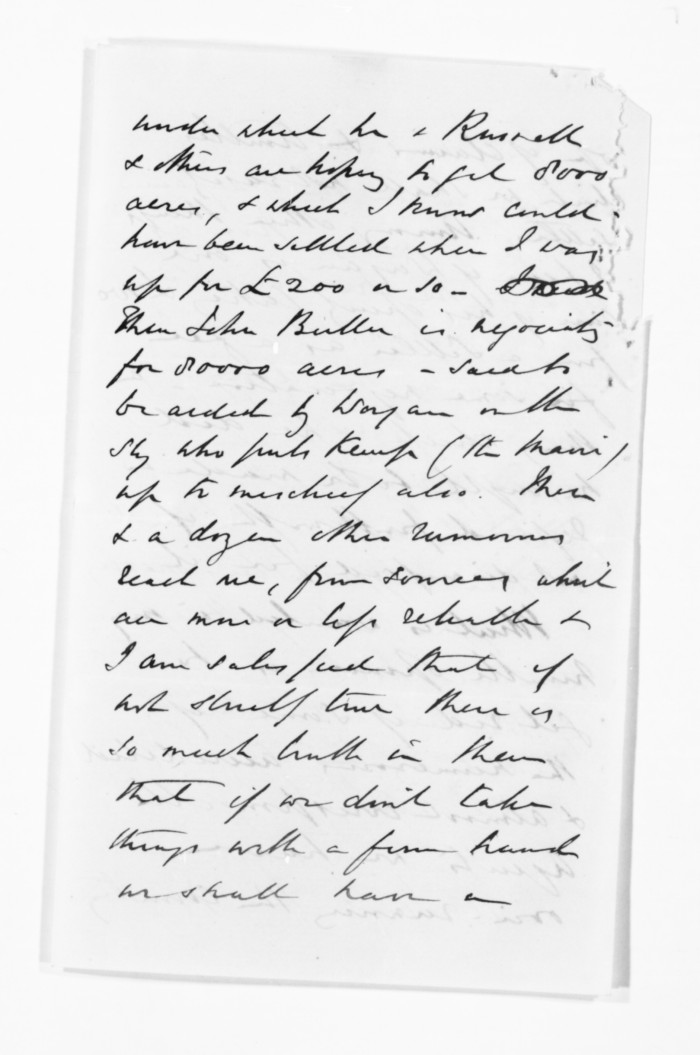 under which he & Russell
& others are hoping to get 8000
acres, & which I know could
have been settled when I was
up for £200 or so -
Then John Buller is negociating
for 80000 acres - said to
be aided by Worgan on the
sly who puts Kemp (the Maori)
up to mischief also. These
& a dozen other rumours
reach me, from sources which
are more or less reliable &
I am satisfied that if
not strictly true there is
so much truth in them
that if we don't take
things with a firm hand
we shall have a